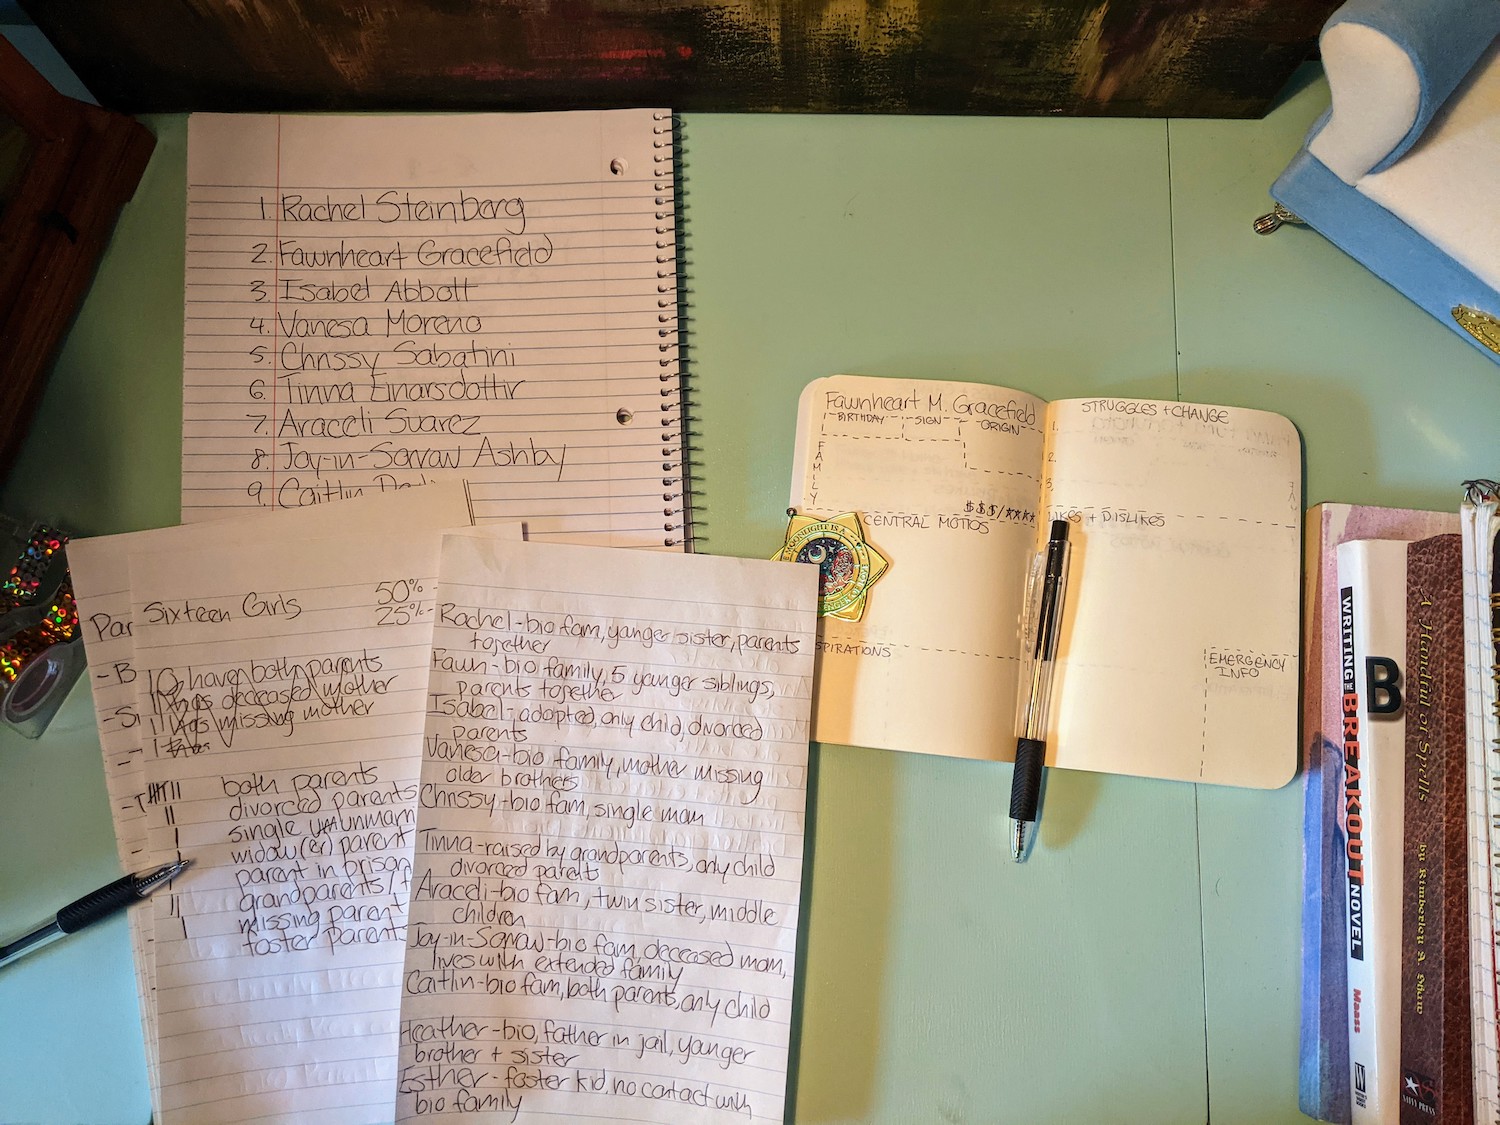 1. Rachel Steinberg
2. Fawnheart Gracefield
3. Isabel Abbott
4. Vanesa Moreno
5. Chrissy Sabatini
6. Tinna Einarsdottir
7. Araceli Suarez
8. Joy-in-Sorrow Ashby
9. Caitlin
Par
- B
- Si
-
- T
-
Sixteen Girls
50% -
25% -
10 have both parents
1 has deceased mother
1 has missing mother
1
both parents
divorced parents
single unmarr
widow(er) parent
parent in prison
grandparents/
missing parent
foster parents
Rachel - bio fam, yanger sister, parents
together
Fawn - bio family, 5 yanger siblings,
parents together
Isabel - adopted, only child, divorced
parents
Vanesa - bio family, mother missing
older brothers
Chrissy - bio fam, single mom
Tinna - raised by grandparents, only child
divorced parents
Araceli - bio fam, twin sister, middle
children
Joy-in-Sorrow - bio fam, deceased mom,
lives with extended family
Caitlin - bio fam, both parents, only child
Heather - bio, father in jail, yanger
brother + sister
Esther - foster kid, no contact with
bio family
Fawnheart M. Gracefield
BIRTHDAY
SIGN
ORIGIN
FAMILY
$$$/****
CENTRAL MOTTOS
SPIRATIONS
MOONLIGHT IS A
STRUGGLES + CHANGE
1.
2.
3.
LIKES + DISLIKES
EMERGENCY
INFO
WRITING THE BREAKOUT NOVEL
Maass
B
A Handful of Spells
by Kimberlee A.
MISS PRESS